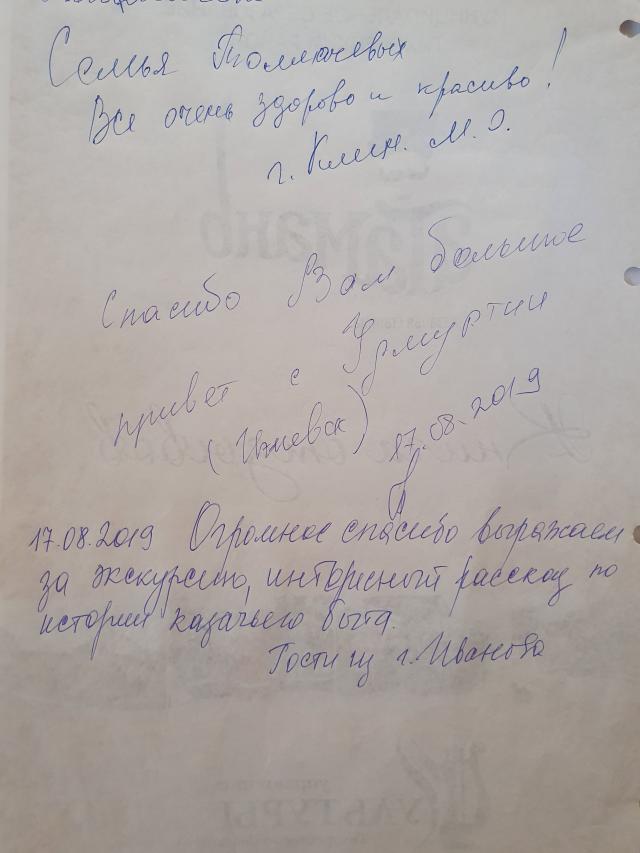 Семья
Все очень здорово и красиво!
г. Клин. М.О.
Спасибо Вам большое
привет с Удмуртии
(Ижевск) 17.08.2019
17.08.2019 Огромное спасибо выражаем
за экскурсию, интересный рассказ по
истории казачьего быта.
Гости из г. Иванова